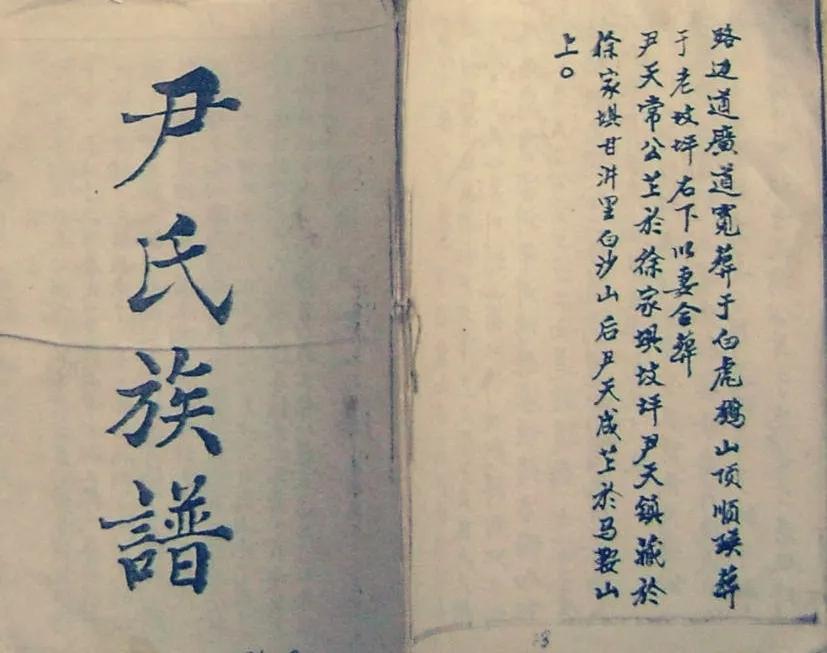 尹氏族譜
路边道廣道寬葬于白虎鵝山顶顺瑛葬
于老坡坪右下以妻合葬
尹天常公芷於徐家垻坡坪尹天鎮藏於
徐家垻甘洴里白沙山后尹天成芷於马鞍山
上○